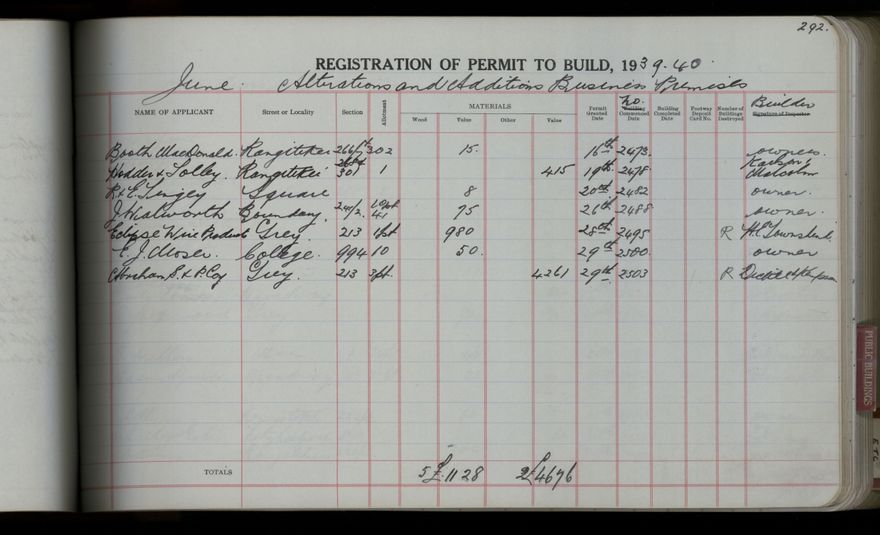 292.
REGISTRATION OF PERMIT TO BUILD, 1939.40
June Alterations and Additions Business Premises
NAME OF APPLICANT Street or Locality Section Allotment MATERIALS Wood Value Other Value Permit Granted Date No. Building Commenced Date Building Completed Date Footway Deposit Card No. Number of Buildings Destroyed Builder Signature of Inspector
Booth MacDonald. Rangitikei 302 15. 16th 2473. owners.
Hodder & Tolley. Rangitikei 301 1 415 19th 2478 Malcolm
Square 8 20th 2482 owner.
Walworth Boundary. 41 75 26th 2488 owner.
Eclipse Wire Products Grey. 213 1pt 980 28th 2495 R H.C. Townshend.
E. J. Moser. College. 994 10 50. 29th 2500. owner
Abraham S. & P. Coy Grey. 213 3pt. 4261 29th 2503 R
TOTALS 5 £1128 2 £4676
PUBLIC BUILDINGS